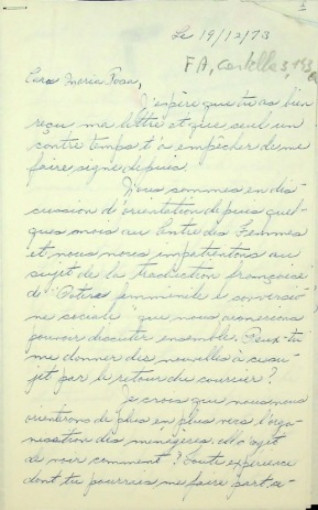 1
Le 19/12/73
FA, Cartella 3, 193,
Cara Maria Rosa,
J'espère que tu as bien
reçu ma lettre et que seul un
contre temps t'a empêcher de me
faire signe depuis.
Nous sommes en dis-
cussion d'orientation depuis quel-
ques mois au Centre des Femmes
et nous nous impatientons au
sujet de la traduction française
de "Potere femminile e sovversio
ne sociale" que nous aimerions
pouvoir discuter ensemble. Peux-tu
me donner des nouvelles à ce su-
jet par le retour du courrier?
Je crois que nous nous
orienterons de plus en plus vers l'orga-
nisation des ménagères. Il s'agit
de voir comment? Toute expérience
dont tu pourrais me faire part à